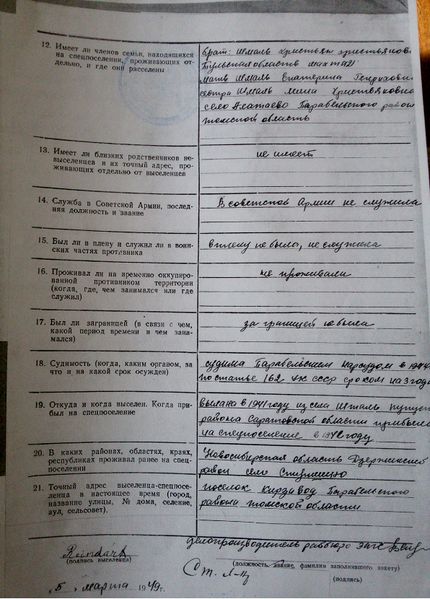 12. Имеет ли членов семьи, находящихся
на спецпоселении, проживающих от-
дельно, и где они расселены
брат: Шмаль Христьян Христьянов
Тульская область шахта 21
Мать Шмаль Екатерина
сестра Шмаль Христьяновна
село Парабельского района
томской область
13. Имеет ли близких родственников не-
выселенцев и их точный адрес, про-
живающих отдельно от выселенцев
не имеет
14. Служба в Советской Армии, послед-
няя должность и звание
В советской Армии не служила
15. Был ли в плену и служил ли в воин-
ских частях противника
в плену не была, не служила
16. Проживал ли на временно оккупиро-
ванной противником территории
(когда, где, чем занимался или где
служил)
не проживала
17. Был ли заграницей (в связи с чем,
какой период времени и чем зани-
мался)
за границей не была
18. Судимость (когда, каким органом, за
что и на какой срок осужден)
судима Парабельским нарсудом в
по статье 162 УК СССР сроком на 3 года
19. Откуда и когда выселен. Когда при-
был на спецпоселение
выслана в 1941 году из села Шталь
района Саратовской области прибыла
на спецпоселение в году
20. В каких районах, областях, краях,
республиках проживал ранее на спец-
поселении
Новосибирская область
район село
21. Точный адрес выселенца-спецпосе-
ленца в настоящее время (город,
название улицы, № дома, селение,
аул, сельсовет).
поселок Парабельского
района томской области
делопроизводитель
(подпись выселенца)
(должность, звание, фамилия заполнившего анкету)
Ст. Л-нт
(подпись)
„5" марта 1949 г.